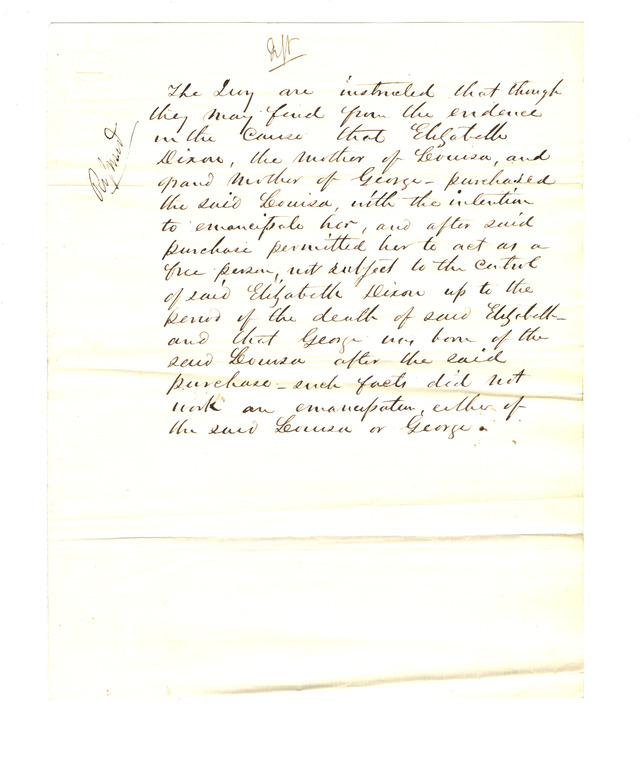 Dft
The Jury are instructed that though
they may find from the evidence
in the cause that Elizabeth
Dixon, the mother of Louisa, and
grand mother of George - purchased
the said Louisa, with the intention
to emancipate her, and after said
purchase permitted her to act as a
free person, not subject to the control
of said Elizabeth Dixon up to the
period of the death of said Elizabeth -
and that George was born of the
said Louisa after the said
purchase - such facts did not
work an emancipation, either of
the said Louisa or George.